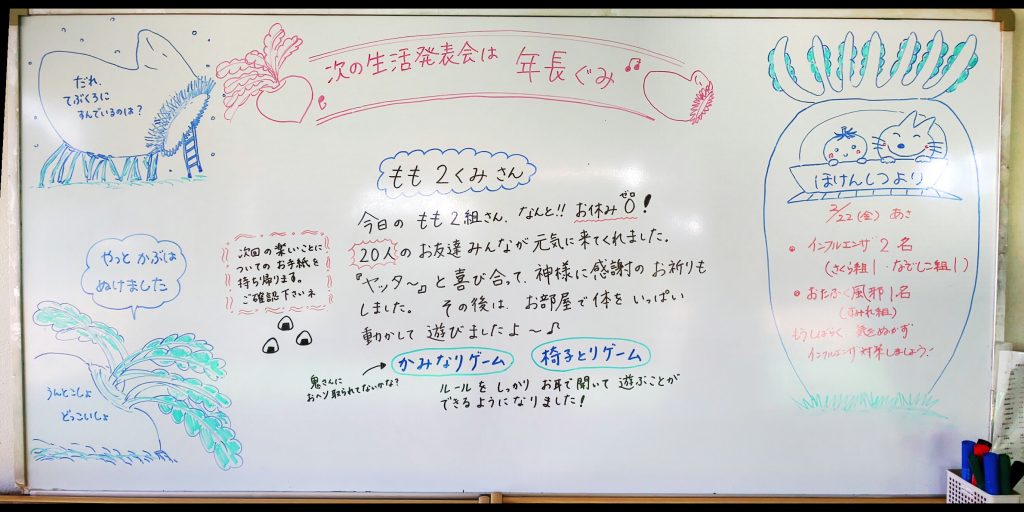 だれ、
てぶくろに
すんでいるのは?
次の生活発表会は 年長ぐみ♫
もも2くみさん
今日の もも2組さん、なんと!! お休み0!
ゼロ
20人の お友達みんなが元気に来てくれました。
『ヤッタ〜』と喜び合って、神様に感謝のお祈りも
しました。 その後は、お部屋で体をいっぱい
動かして 遊びましたよ〜♪
かみなりゲーム
椅子とりゲーム
鬼さんに
おヘソ取られてないかな?
ルールを しっかり お耳で聞いて 遊ぶことが
できるようになりました!
次回の楽しいことに
ついてのお手紙を
持ち帰ります。
ご確認下さいネ
やっと かぶは
ぬけました
うんとこしょ
どっこいしょ
ほけんしつより
2/22(金) あさ
• インフルエンザ 2名
(さくら組1・なでしこ組1)
• おたふく風邪1名
(すみれ組)
もうしばらく、気をぬかず
インフルエンザ対策しましょう!